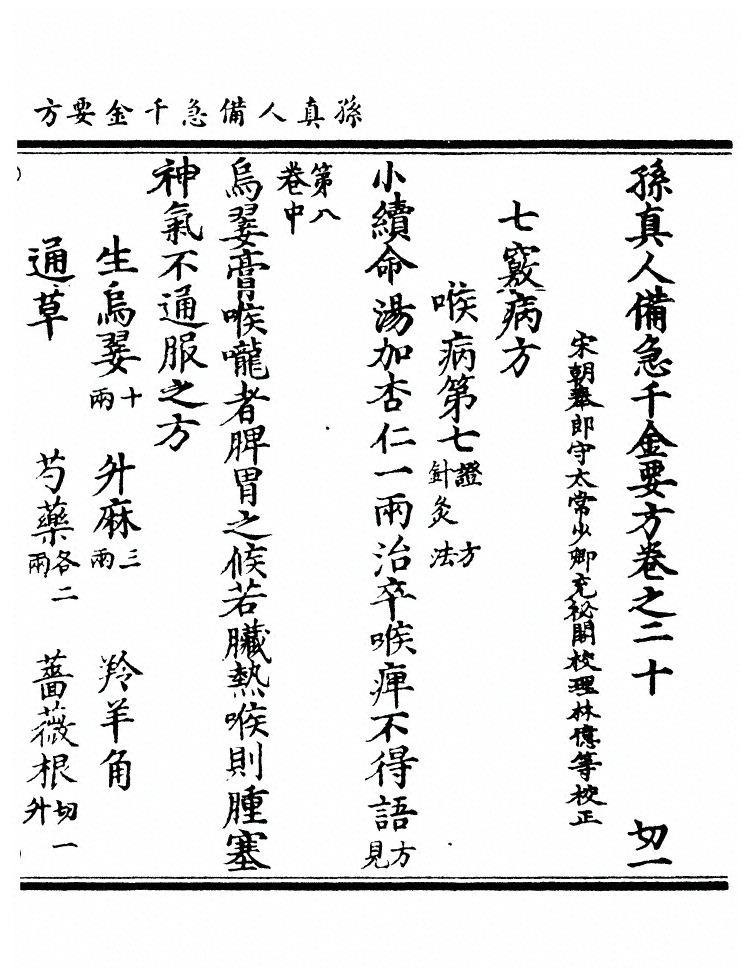 孫真人備急千金要方
孫真人備急千金要方卷之二十 切一
宋朝奉郎守太常少卿充秘閣校理林億等校正
七竅病方
喉病第七 證方針灸法
小續命湯加杏仁一兩治卒喉痺不得語 方見
第八卷中
烏翣膏喉嚨者脾胃之候若臟熱喉則腫塞
神氣不通服之方
生烏翣十兩 升麻三兩 羚羊角
通草 芍藥各二兩 薔薇根切一升